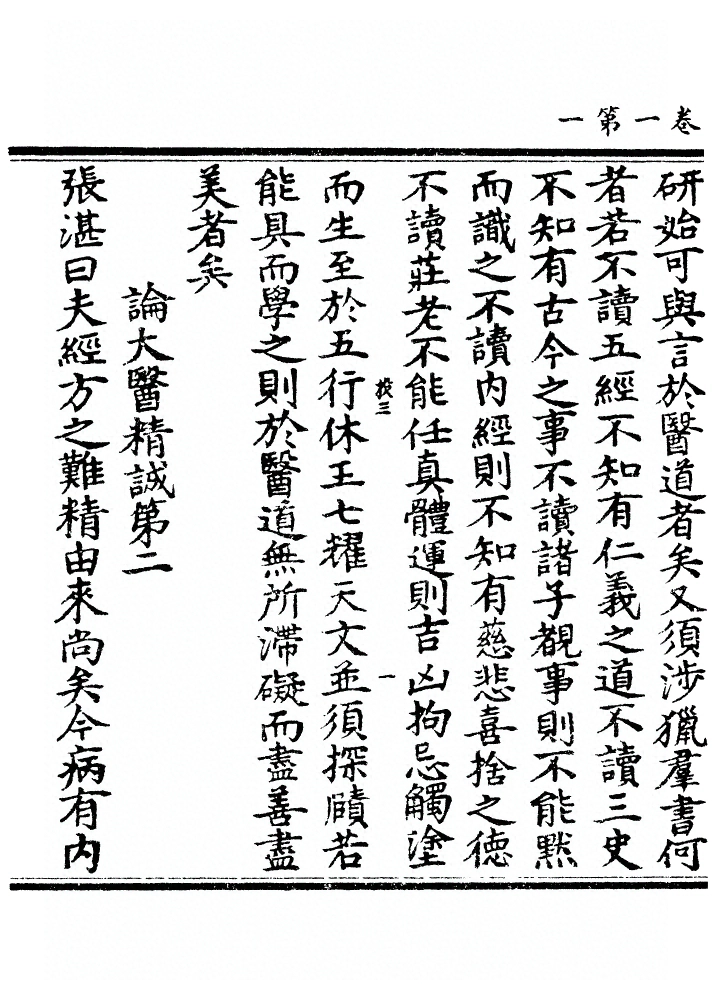 卷一第一
研始可與言於醫道者矣又須涉獵羣書何
者若不讀五經不知有仁義之道不讀三史
不知有古今之事不讀諸子覩事則不能默
而識之不讀内經則不知有慈悲喜捨之德
不讀莊老不能任真體運則吉凶拘忌觸塗
挍三
一
而生至於五行休王七耀天文並須探賾若
能具而學之則於醫道無所滯礙而盡善盡
美者矣
論大醫精誠第二
張湛曰夫經方之難精由來尚矣今病有内